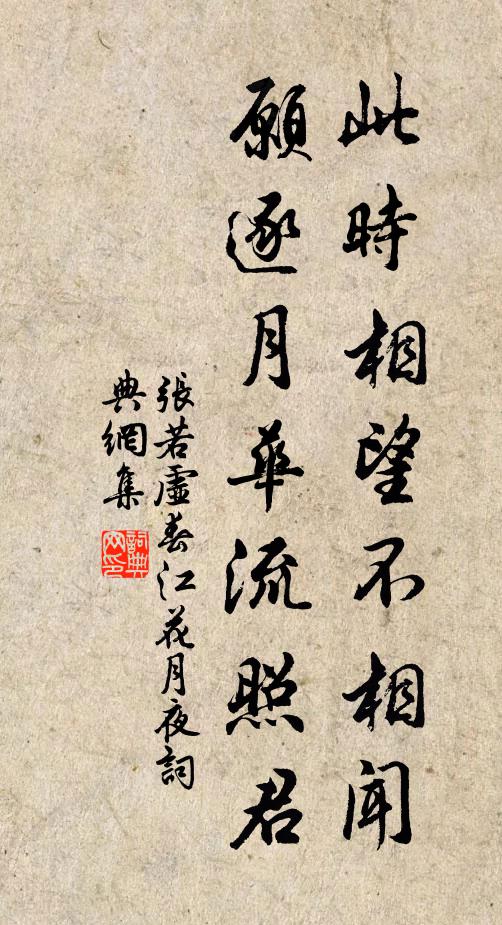 此時相望不相聞
願逐月華流照君
張若虛春江花月夜詞
典網集
詞典网印